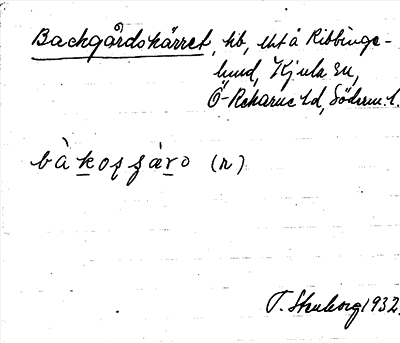 Backgårdskärret, hb, utå Ribbinge-
lund, Kjula sn,
Ö-Rekarne hd, Söderm. l.
bàkosʃàro (n)
T. Skuborg 1932.